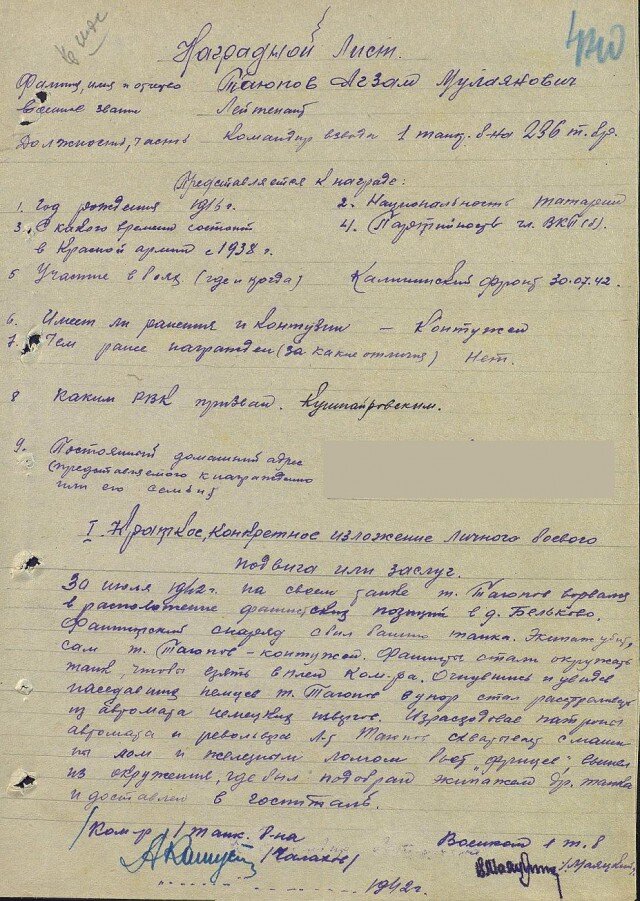 440
Наградной Лист.
Фамилия, имя и отчество Таюпов Агзам Мулаянович
Военное звание Лейтенант
Должность, часть Командир взвода 1 танк. б-на 236 т. бр.
Представляется к награде:
1. Год рождения 1915 г. 2. Национальность татарин
3. С какого времени состоит 4. Партийность чл. ВКП(б).
в Красной армии с 1938 г.
5 Участие в боях (где и когда) Калининский фронт 30.07.42.
6. Имеет ли ранения и контузии – Контужен
7. Чем ранее награжден (за какие отличия) Нет.
8 Каким РВК призван. Кушнаровским.
9. Постоянный домашний адрес
(представляемого к награждению
или его семьи)
I. Краткое, конкретное изложение личного боевого
подвига или заслуг.
30 июля 1942 г. на своем танке т. Таюпов ворвался
в расположение фашистских позиций в д. Бельково.
Фашистский снаряд сбил башню танка. Экипаж убит,
сам т. Таюпов – контужен. Фашисты стали окружать
танк, чтобы взять в плен Ком-ра. Очнувшись и увидев
наседавших немцев т. Таюпов в упор стал расстреливать
из автомата немецких
Израсходовав патроны
автомата и револьвера л-т Таюпов схватывает с маши
ны лом и железным ломом бьет "фрицев", вышел
из окружения, где был подобран экипажем др. танка
и доставлен в госпиталь.
/Ком-р 1 танк. б-на Военком 1 т. б
/Маяцкий/
1942 г.